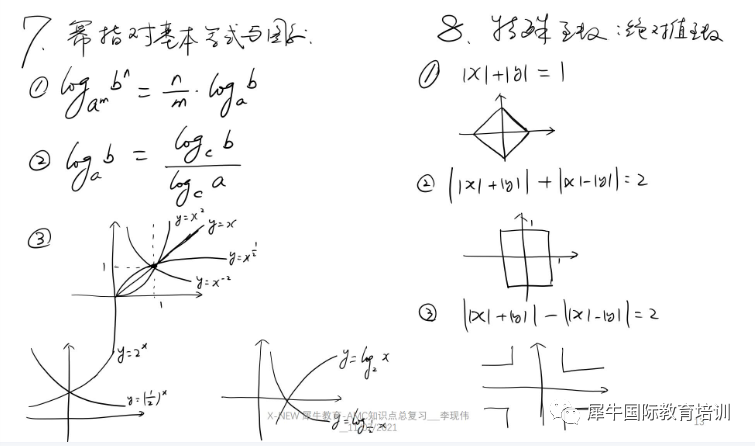 7. 幂指对基本公式与图象.
① log_{a^m} b^n = n/m · log_a b
② log_a b = log_c b / log_c a
③
y=x^2
y=x
y=x^{1/2}
y=x^{-2}
1
1
y=2^x
y=(1/2)^x
y=log_2 x
y=log_{1/2} x
8. 特殊函数:绝对值函数
① |x|+|y|=1
② ||x|+|y||+||x|-|y||=2
1
1
③ ||x|+|y||-||x|-|y||=2
X-NEW 犀牛教育-AMC知识点总复习__李现伟
犀牛国际教育培训